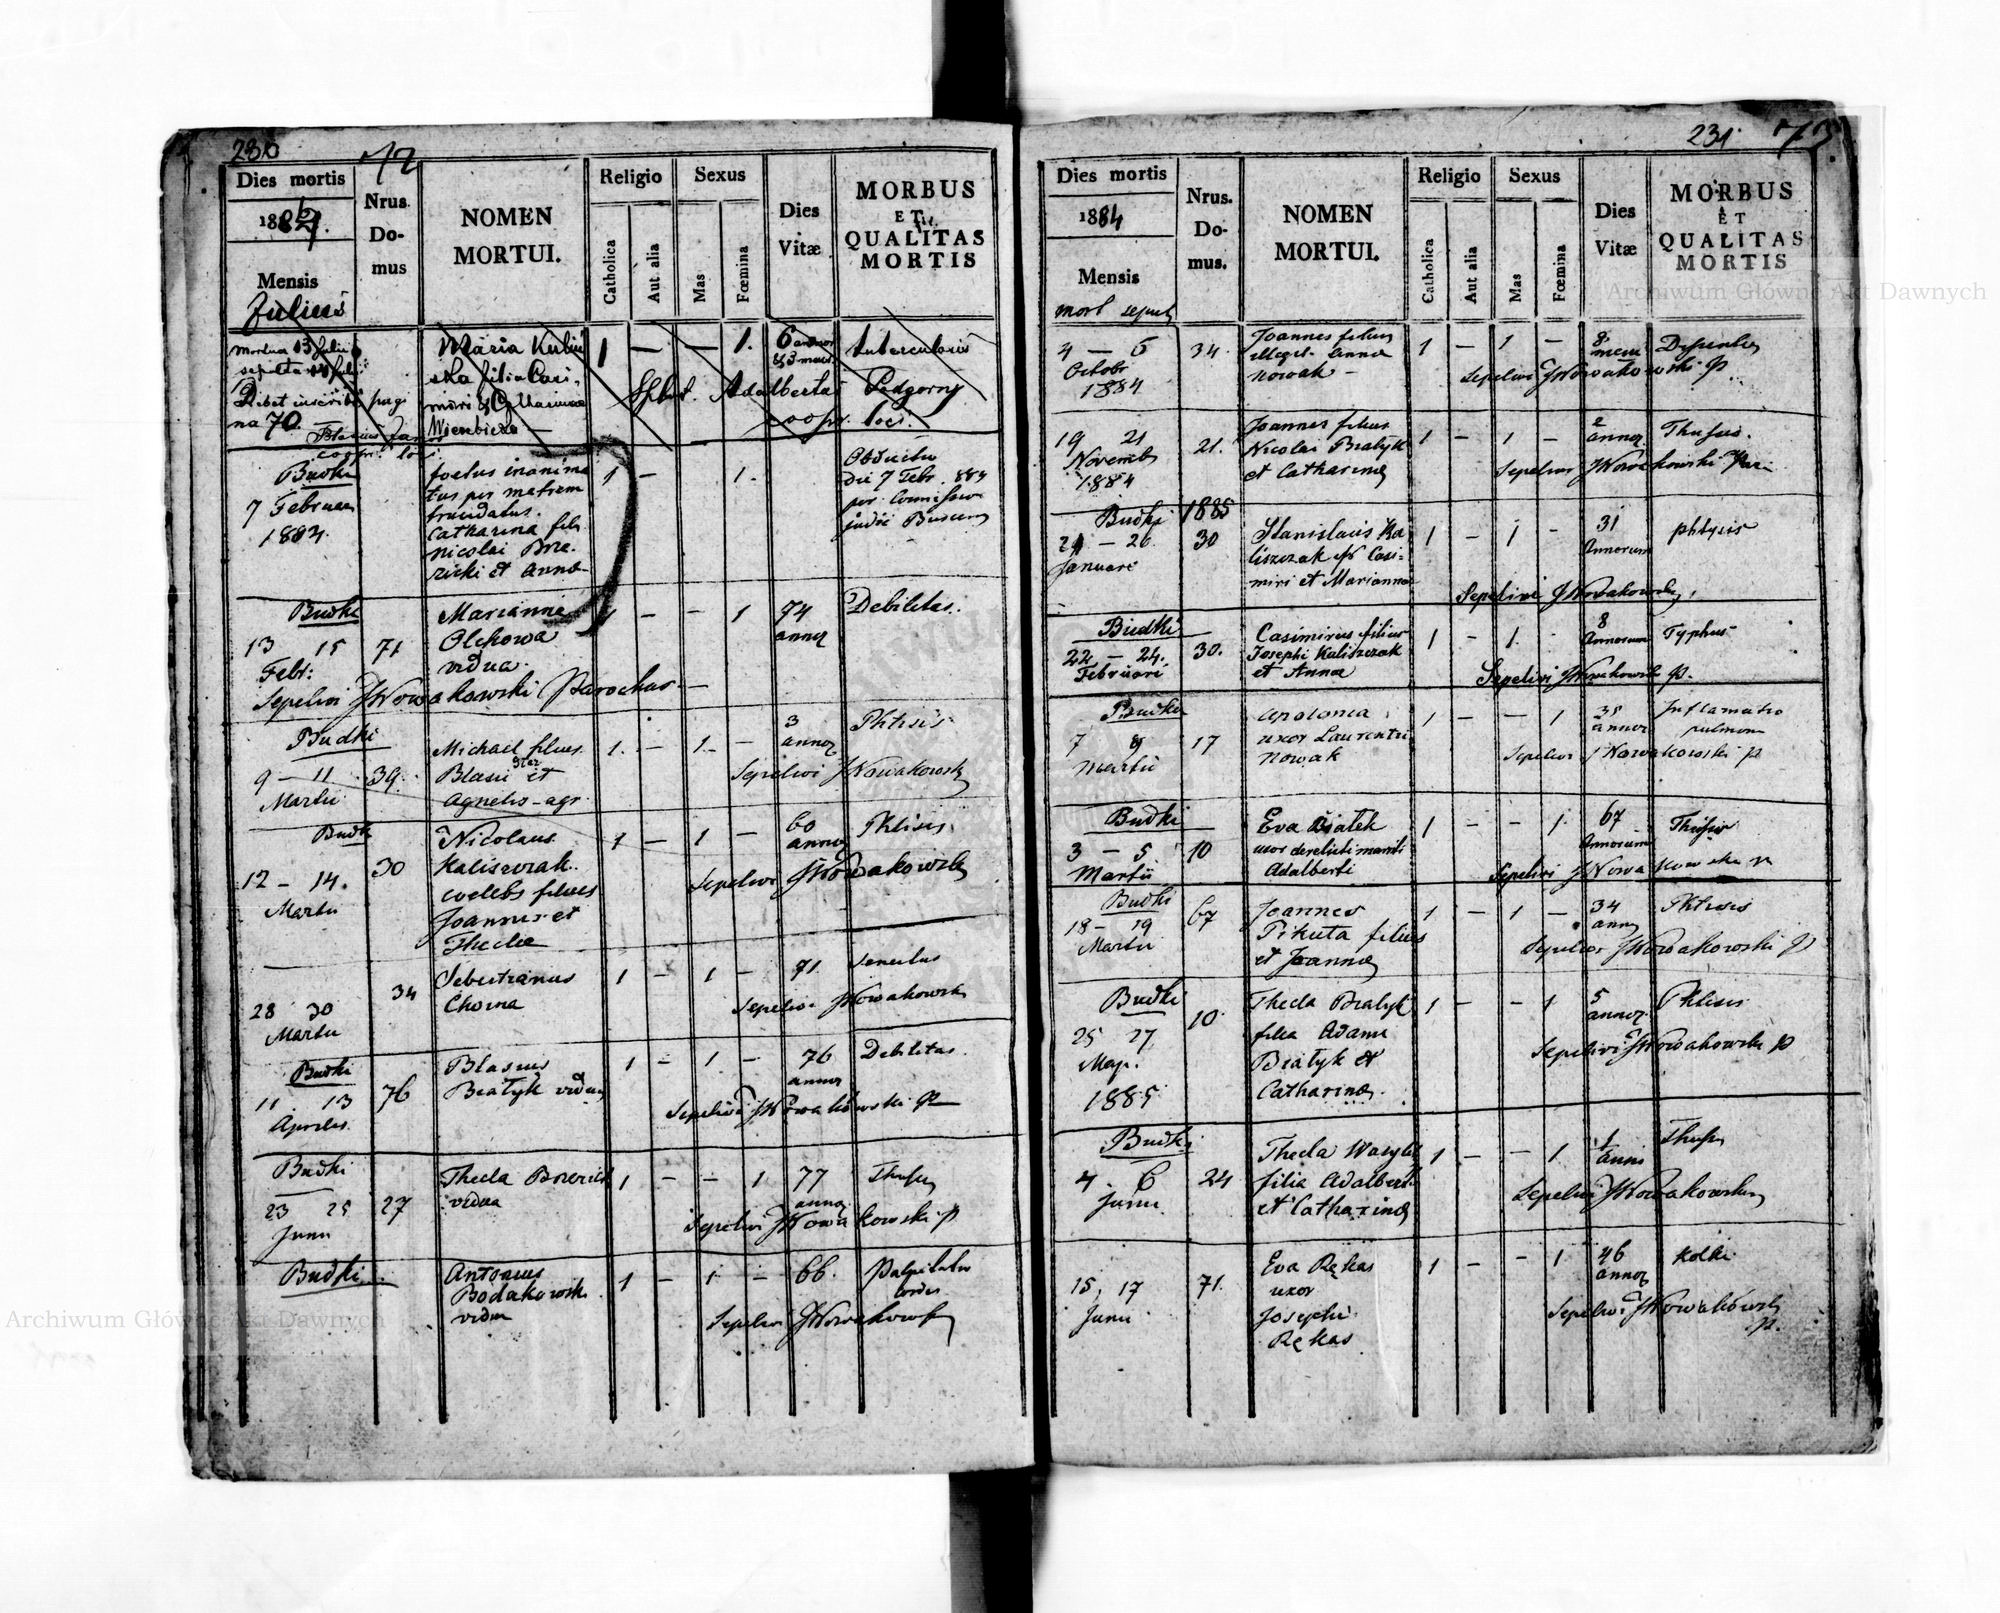 230
72
Dies mortis
Nrus.
Do-
mus
NOMEN
MORTUI.
Religio
Sexus
Catholica
Aut alia
Mas
Fœmina
Dies
Vitæ
MORBUS
ET
QUALITAS
MORTIS
Mensis
Julius
Mortua 13 Julii
sepulta
Debet inscribi pagi
na 70.
Maria
ska filia Casi-
miri & Catharinae
1 — — 1.
6 annor
& 3 mens.
tuberculosis
Adalbertus Podgorny
coopr. loci.
Budki
7 Februari
foetus inanima
tus per matrem
Catharina fil.
Nicolai
et Anna
1 — 1.
Obductu
die 7 Febr. 884
per
Budki
13 15
Febr:
71
Marianna
Olchowa
vidua
1 — — 1
74
annor
Debilitas.
Sepelivi JNowakowski Parochus
Budki
9 — 11
Martii
39.
Michael filius
Blasii et
Agnetis
1. — 1. —
3
annor
Phtisis
Sepelivi JNowakowski
Budki
12 — 14.
Martii
30
Nicolaus
Kaliszczak
coelebs filius
Joannis et
Theclae
1 — 1 —
60
annor
Phtisis
Sepelivi JNowakowski
28 30
Martii
34
Sebestianus
Choma
1 — 1 —
71
Senectus
Sepelivi JNowakowski
Budki
11 13
Aprilis
76
Blasius
Białyk viduus
1 — 1 —
76
annor
Debilitas.
Sepelivi JNowakowski P
Budki
23 25
Junii
27
Thecla
vidua
1 — — 1
77
annor
Sepelivi JNowakowski P
Budki
Antonius
Bodakowski
1 — 1 —
66.
Palpitatio
cordis
Sepelivi JNowakowski
231.
73
Dies mortis
1884
Mensis
mort sepult
Nrus.
Do-
mus.
NOMEN
MORTUI.
Religio
Sexus
Catholica
Aut alia
Mas
Fœmina
Dies
Vitæ
MORBUS
ET
QUALITAS
MORTIS
4 — 5
Octobr
1884
34.
Joannes filius
illegit. Annae
Nowak —
1 — 1 —
8.
mens
Sepelivi JNowakowski P
19 21
Novemb
1884
21.
Joannes filius
Nicolai Białyk
et Catharinae
1 — 1 —
2
annor
Sepelivi JNowakowski
Budki 1885
24 — 26.
Januari
30
Stanislaus Ka
liszczak f Casi-
miri et Marianna
1 — 1 —
31
Annorum
phtysis
Sepelivi JNowakowski
Budki
22 — 24.
Februari
30.
Casimirus filius
Josephi Kaliszczak
et Anna
1 — 1. -
8
Annorum
Typhus
Sepelivi JNowakowski P.
Budki
7 8
Martii
17
Apolonia
uxor Laurentii
Nowak
1 — — 1
35
annor
Inflamatio
pulmon
Sepelivi JNowakowski P
Budki
3 — 5
Martii
10
Eva Białek
uxor derelicti mariti
Adalberti
1 — — 1.
67
Annorum
Sepelivi JNowakowski
Budki
18 — 19
Martii
67
Joannes
Pikuta filius
et Joannae
1 — 1 —
34
ann
Phtisis
Sepelivi JNowakowski P
Budki
25 27
Maj.
1885
10.
Thecla Białyk
filia Adami
Białyk et
Catharinae
1 — — 1
5
annor
Phtisis
Sepelivi JNowakowski P
Budki
4. 6
Junii
24
Thecla
filia Adalberti
et Catharinae
1 — — 1
1
anni
Sepelivi JNowakowski
15, 17
Junii
71.
Eva Rękas
uxor
Josephi
Rękas
1 — — 1
46
annor
Kolki
Sepelivi JNowakowski
P.
Archiwum Główne Akt Dawnych
Archiwum Główne Akt Dawnych